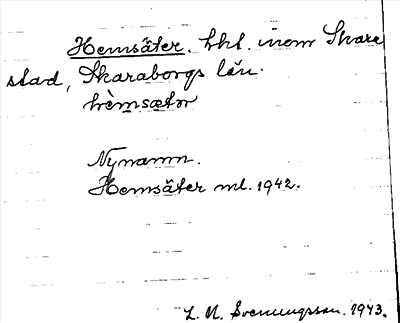 Hemsäter. hkl. inom Skara
stad, Skaraborgs län.
hèmsætər
Nynamn.
Hemsäter ml. 1942.
L. N. Svenungsson. 1943.